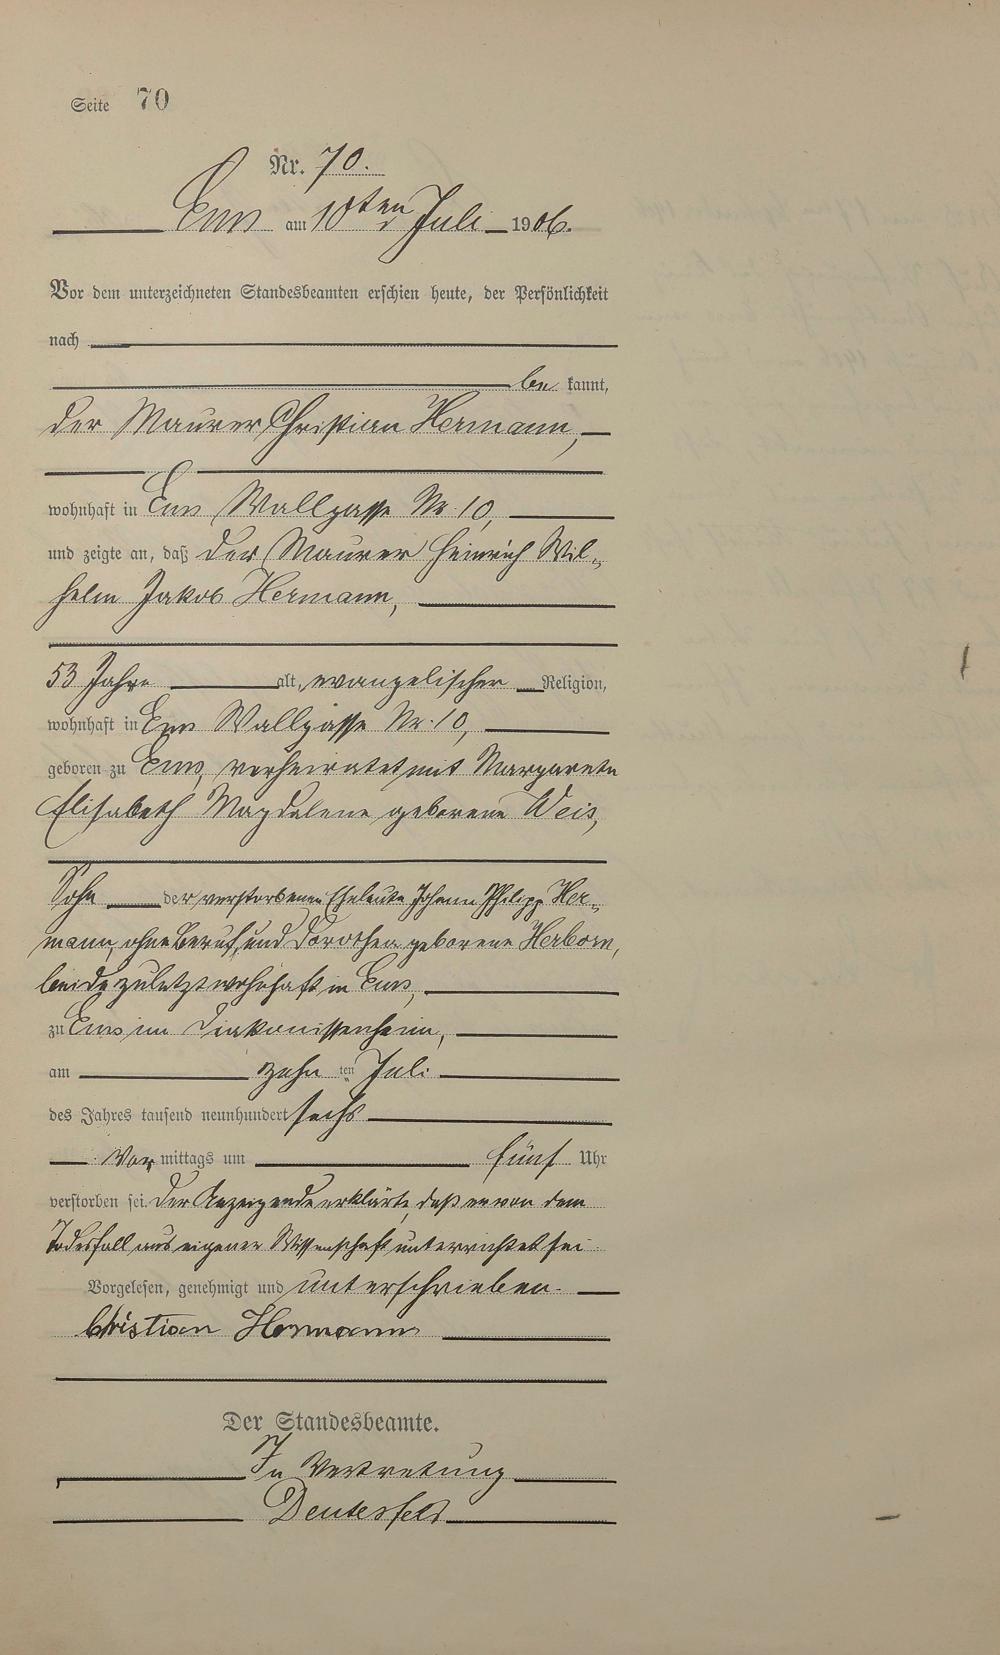 Seite 70
Nr. 70.
Ems am 10ten Juli 1906.
Vor dem unterzeichneten Standesbeamten erschien heute, der Persönlichkeit
nach
be kannt,
der Maurer Christian Hermann,
wohnhaft in Ems Wallgasse Nr. 10,
und zeigte an, daß der Maurer Heinrich Wil-
helm Jakob Hermann,
53 Jahre alt, evangelischer Religion,
wohnhaft in Ems Wallgasse Nr. 10,
geboren zu Ems, verheiratet mit Margareta
Elisabeth Magdalene geborene Weis,
Sohn der verstorbenen Eheleute Johann Philipp Her-
mann, ohne Beruf, und Dorothea geborene Herborn,
beide zuletzt wohnhaft in Ems,
zu Ems im Diakonissenheim,
am zehn ten Juli
des Jahres tausend neunhundert sechs
Vor mittags um fünf Uhr
verstorben sei. Der Anzeigende erklärte, daß er von dem
Todesfall aus eigener Wissenschaft unterrichtet sei.
Vorgelesen, genehmigt und unterschrieben.
Christian Hermann
Der Standesbeamte.
In Vertretung
Deutesfeld